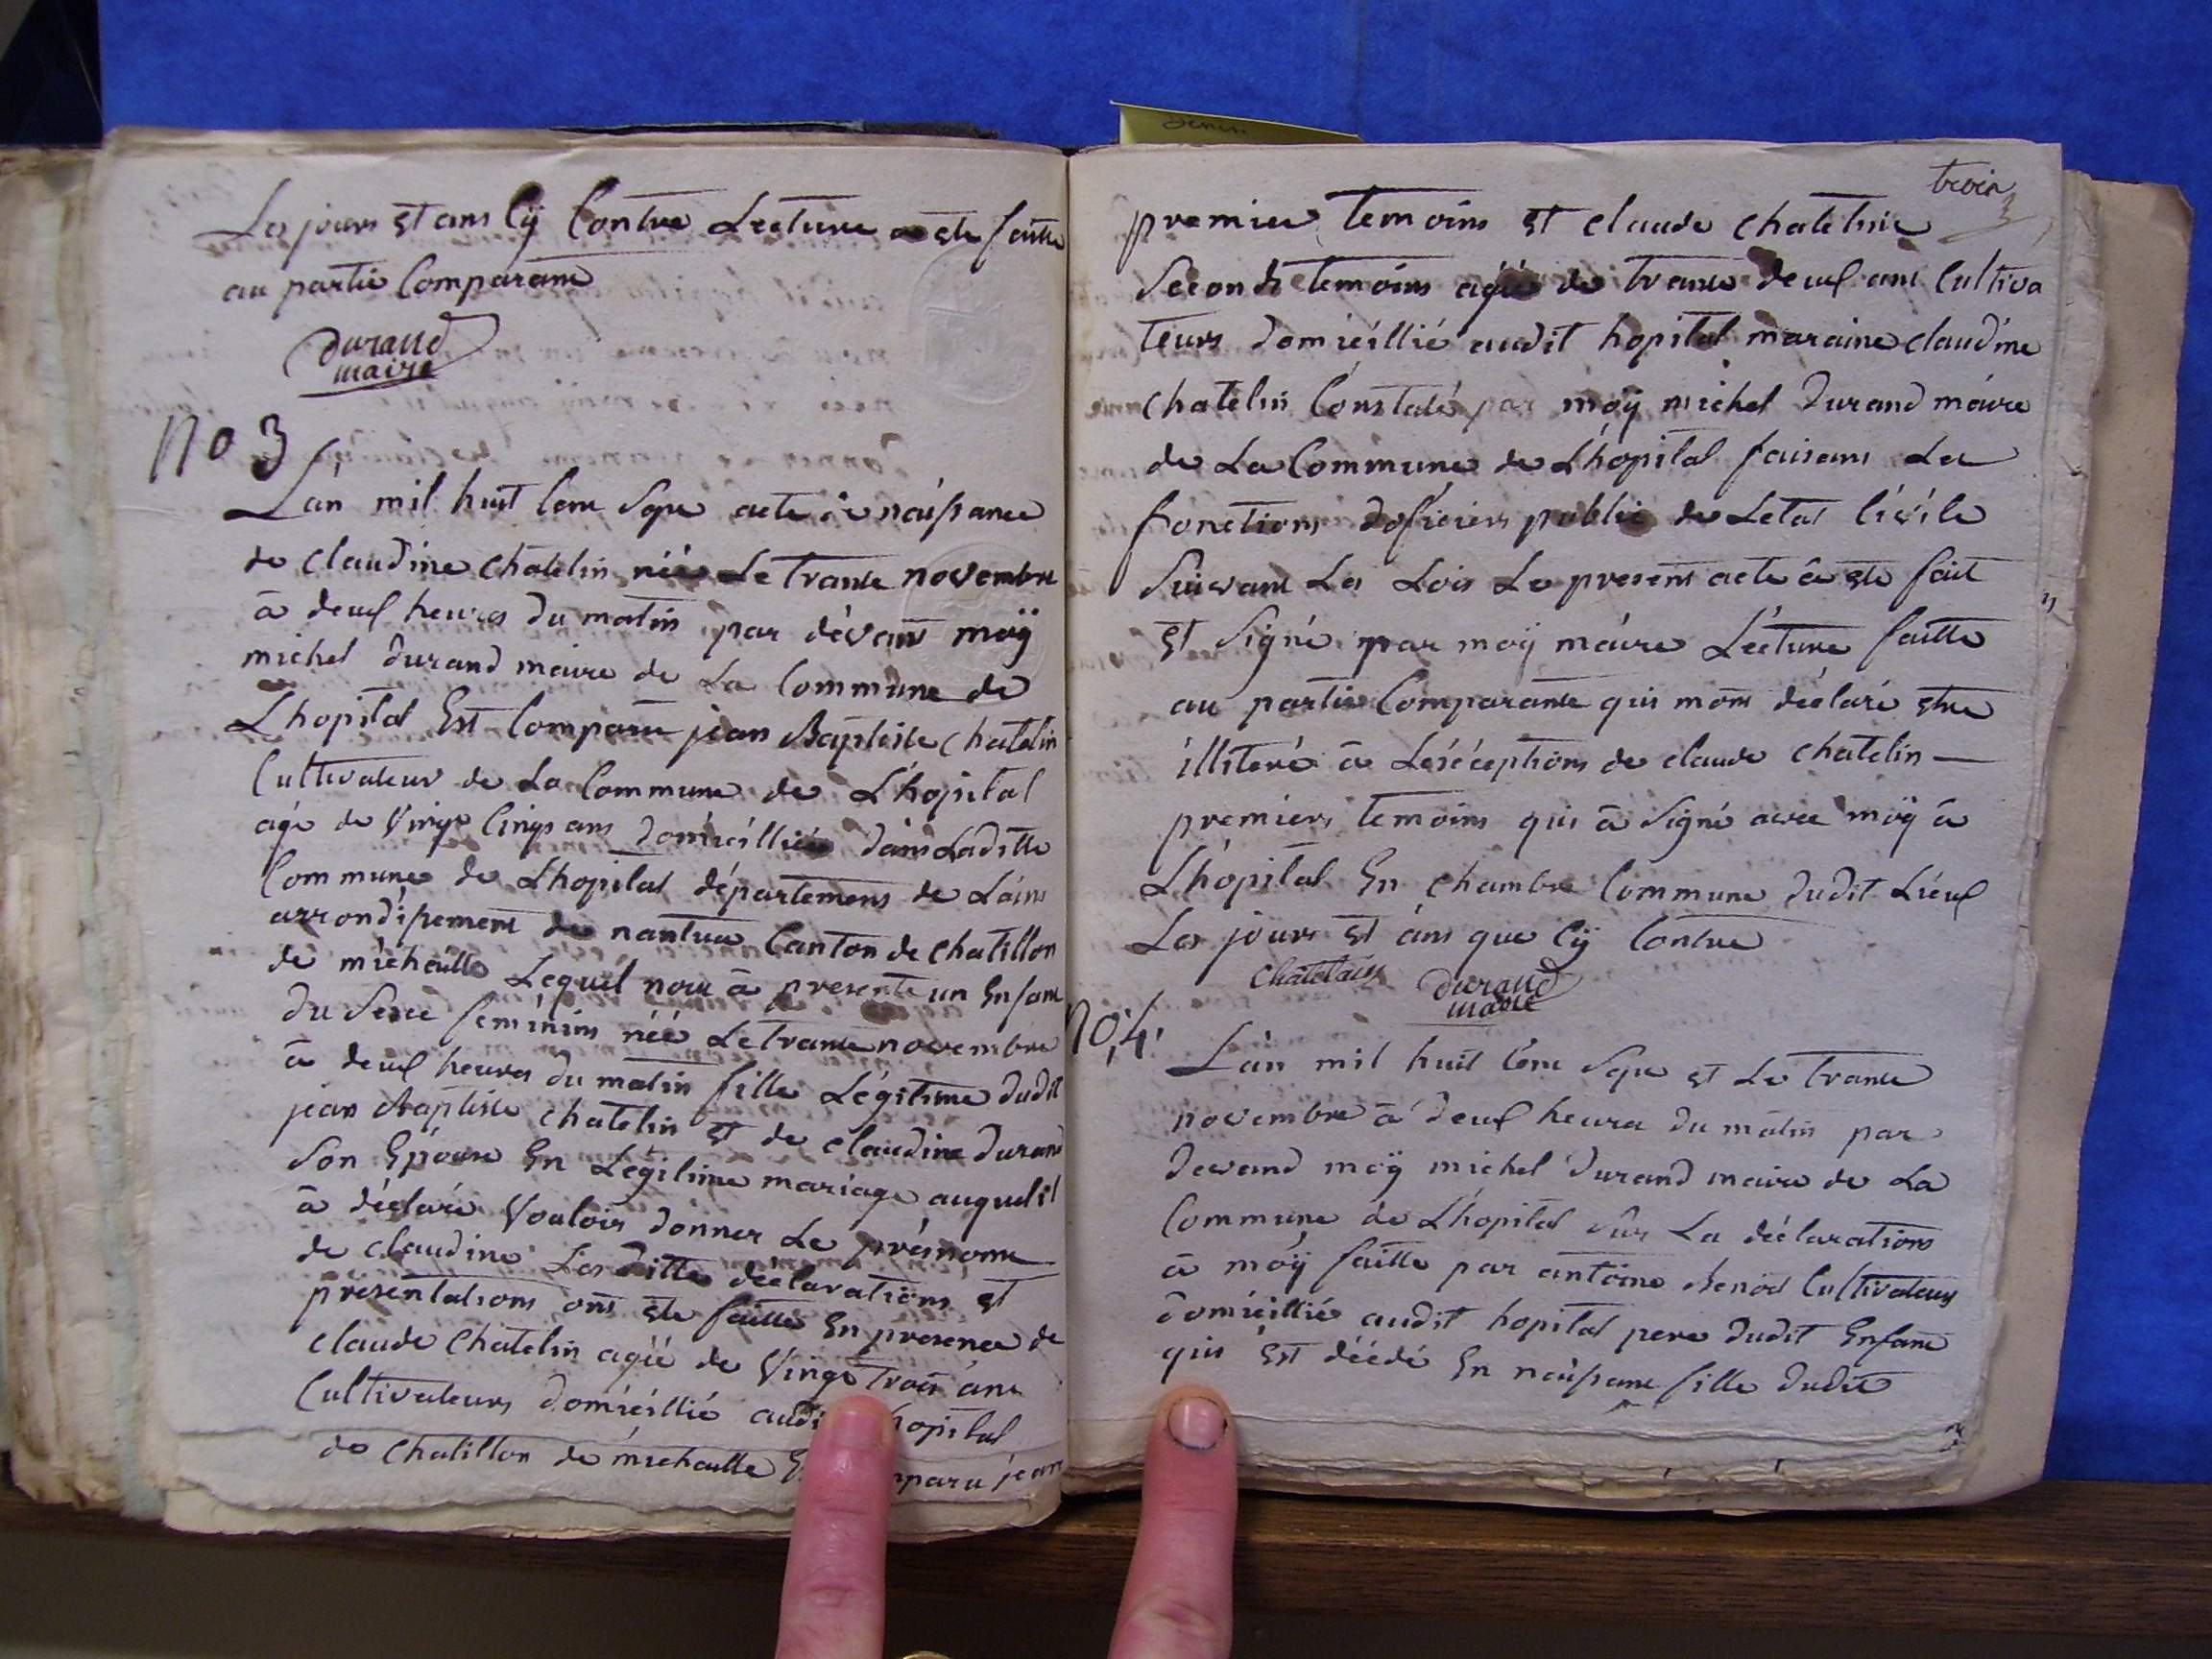 Les jours et ans cÿ Contre Lecture a este faitte
au partie Comparante
Durand
maire
No 3
Lan mil huit Cent Sept acte de naissance
de Claudine chatelin née Le trante novembre
à deux heures du matin par dévant moÿ
michel Durand maire de La Commune de
Lhopital Est Comparu jean Baptiste chatelin
Cultivateur de La Commune de Lhopital
agé de Vingt Cinq ans domicillié dans Laditte
Commune de Lhopital département de Lains
arrondissement de nantua Canton de chatillon
de michaille Lequel nous à presenté un Enfant
du Sexe feminins néé Le trante novembre
à deux heures du matin fille Légitime dudit
jean Baptiste chatelin et de claudine Durand
Son Epouse En Legitime mariage auquel il
à déclaré Vouloir donner Le prénom
de claudine Les ditte déclarations et
presentations ont ete faitte En presence de
claude Chatelin agéé de Vingt trois ans
Cultivateurs domicillié audit hopital
de Chatillon de michaille Est Comparu jean
Denen
trois
3
premier temoins et claude chatelin
Second temoins agéé de trante deux ans Cultiva
teurs domicillié audit hopital maraine claudine
chatelin Constaté par moÿ michel Durand maire
de La Commune de Lhopital faisant La
fonctions dofficiers public de Letat Civile
Suivant Les Lois Le present acte à ete fait
et Signé par moÿ maire Lecture faitte
au partie Comparante qui mont déclaré etre
illiteré à Léxéceptions de claude chatelin —
premiers temoins qui à Signé avec moÿ à
Lhopital En chambre Commune dudit Lieux
Les jours et ans que Cÿ Contre
Chatelain
Durand
maire
No, 4
Lan mil huit Cent Sept et Le trante
novembre à deux heures du matin par
devand moÿ michel Durand maire de La
Commune de Lhopital Sur La déclarations
à moÿ faitte par antoine Benod Cultivateurs
domicillié audit hopital pere dudit Enfant
qui Est déédé En naissant fille dudit